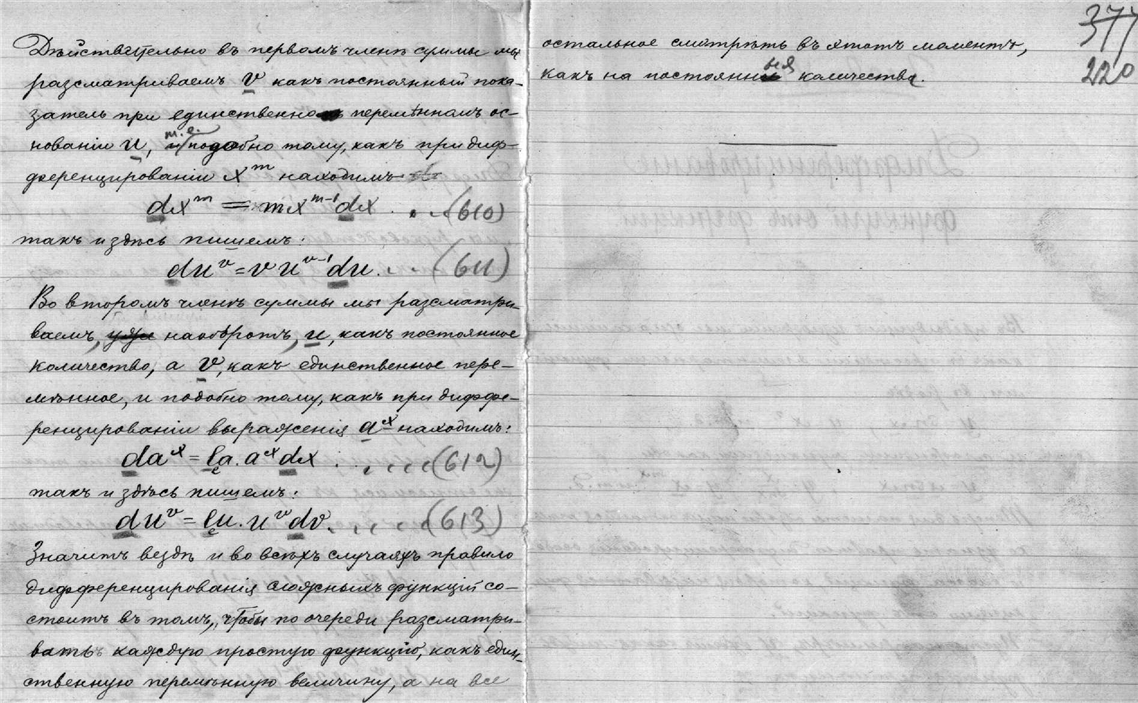 Дѣйствительно въ первомъ членѣ суммы мы
разсматриваемъ v какъ постоянный пока-
затель при единственно перемѣнномъ ос-
нованіи u, т.е. подобно тому, какъ при диф-
ференцированіи x^m находимъ
dx^m = mx^{m-1}dx . . (610)
такъ и здѣсь пишемъ:
du^v = v u^{v-1} du. . . (611)
Во второмъ членѣ суммы мы разсматри-
ваемъ, наоборотъ, u, какъ постоянное
количество, а v, какъ единственное пере-
мѣнное, и подобно тому, какъ при диффе-
ренцированіи выраженія a^x находимъ:
da^x = la. a^x dx . . . . . (612)
такъ и здѣсь пишемъ:
du^v = lu. u^v dv. . . . . (613)
Значитъ вездѣ и во всѣхъ случаяхъ правило
дифференцированія сложныхъ функцій со-
стоитъ въ томъ, чтобы по очереди разсматри-
вать каждую простую функцію, какъ един-
ственную перемѣнную величину, а на все
377
220
остальное смотрѣть въ этотъ моментъ,
какъ на постоянныя количества.